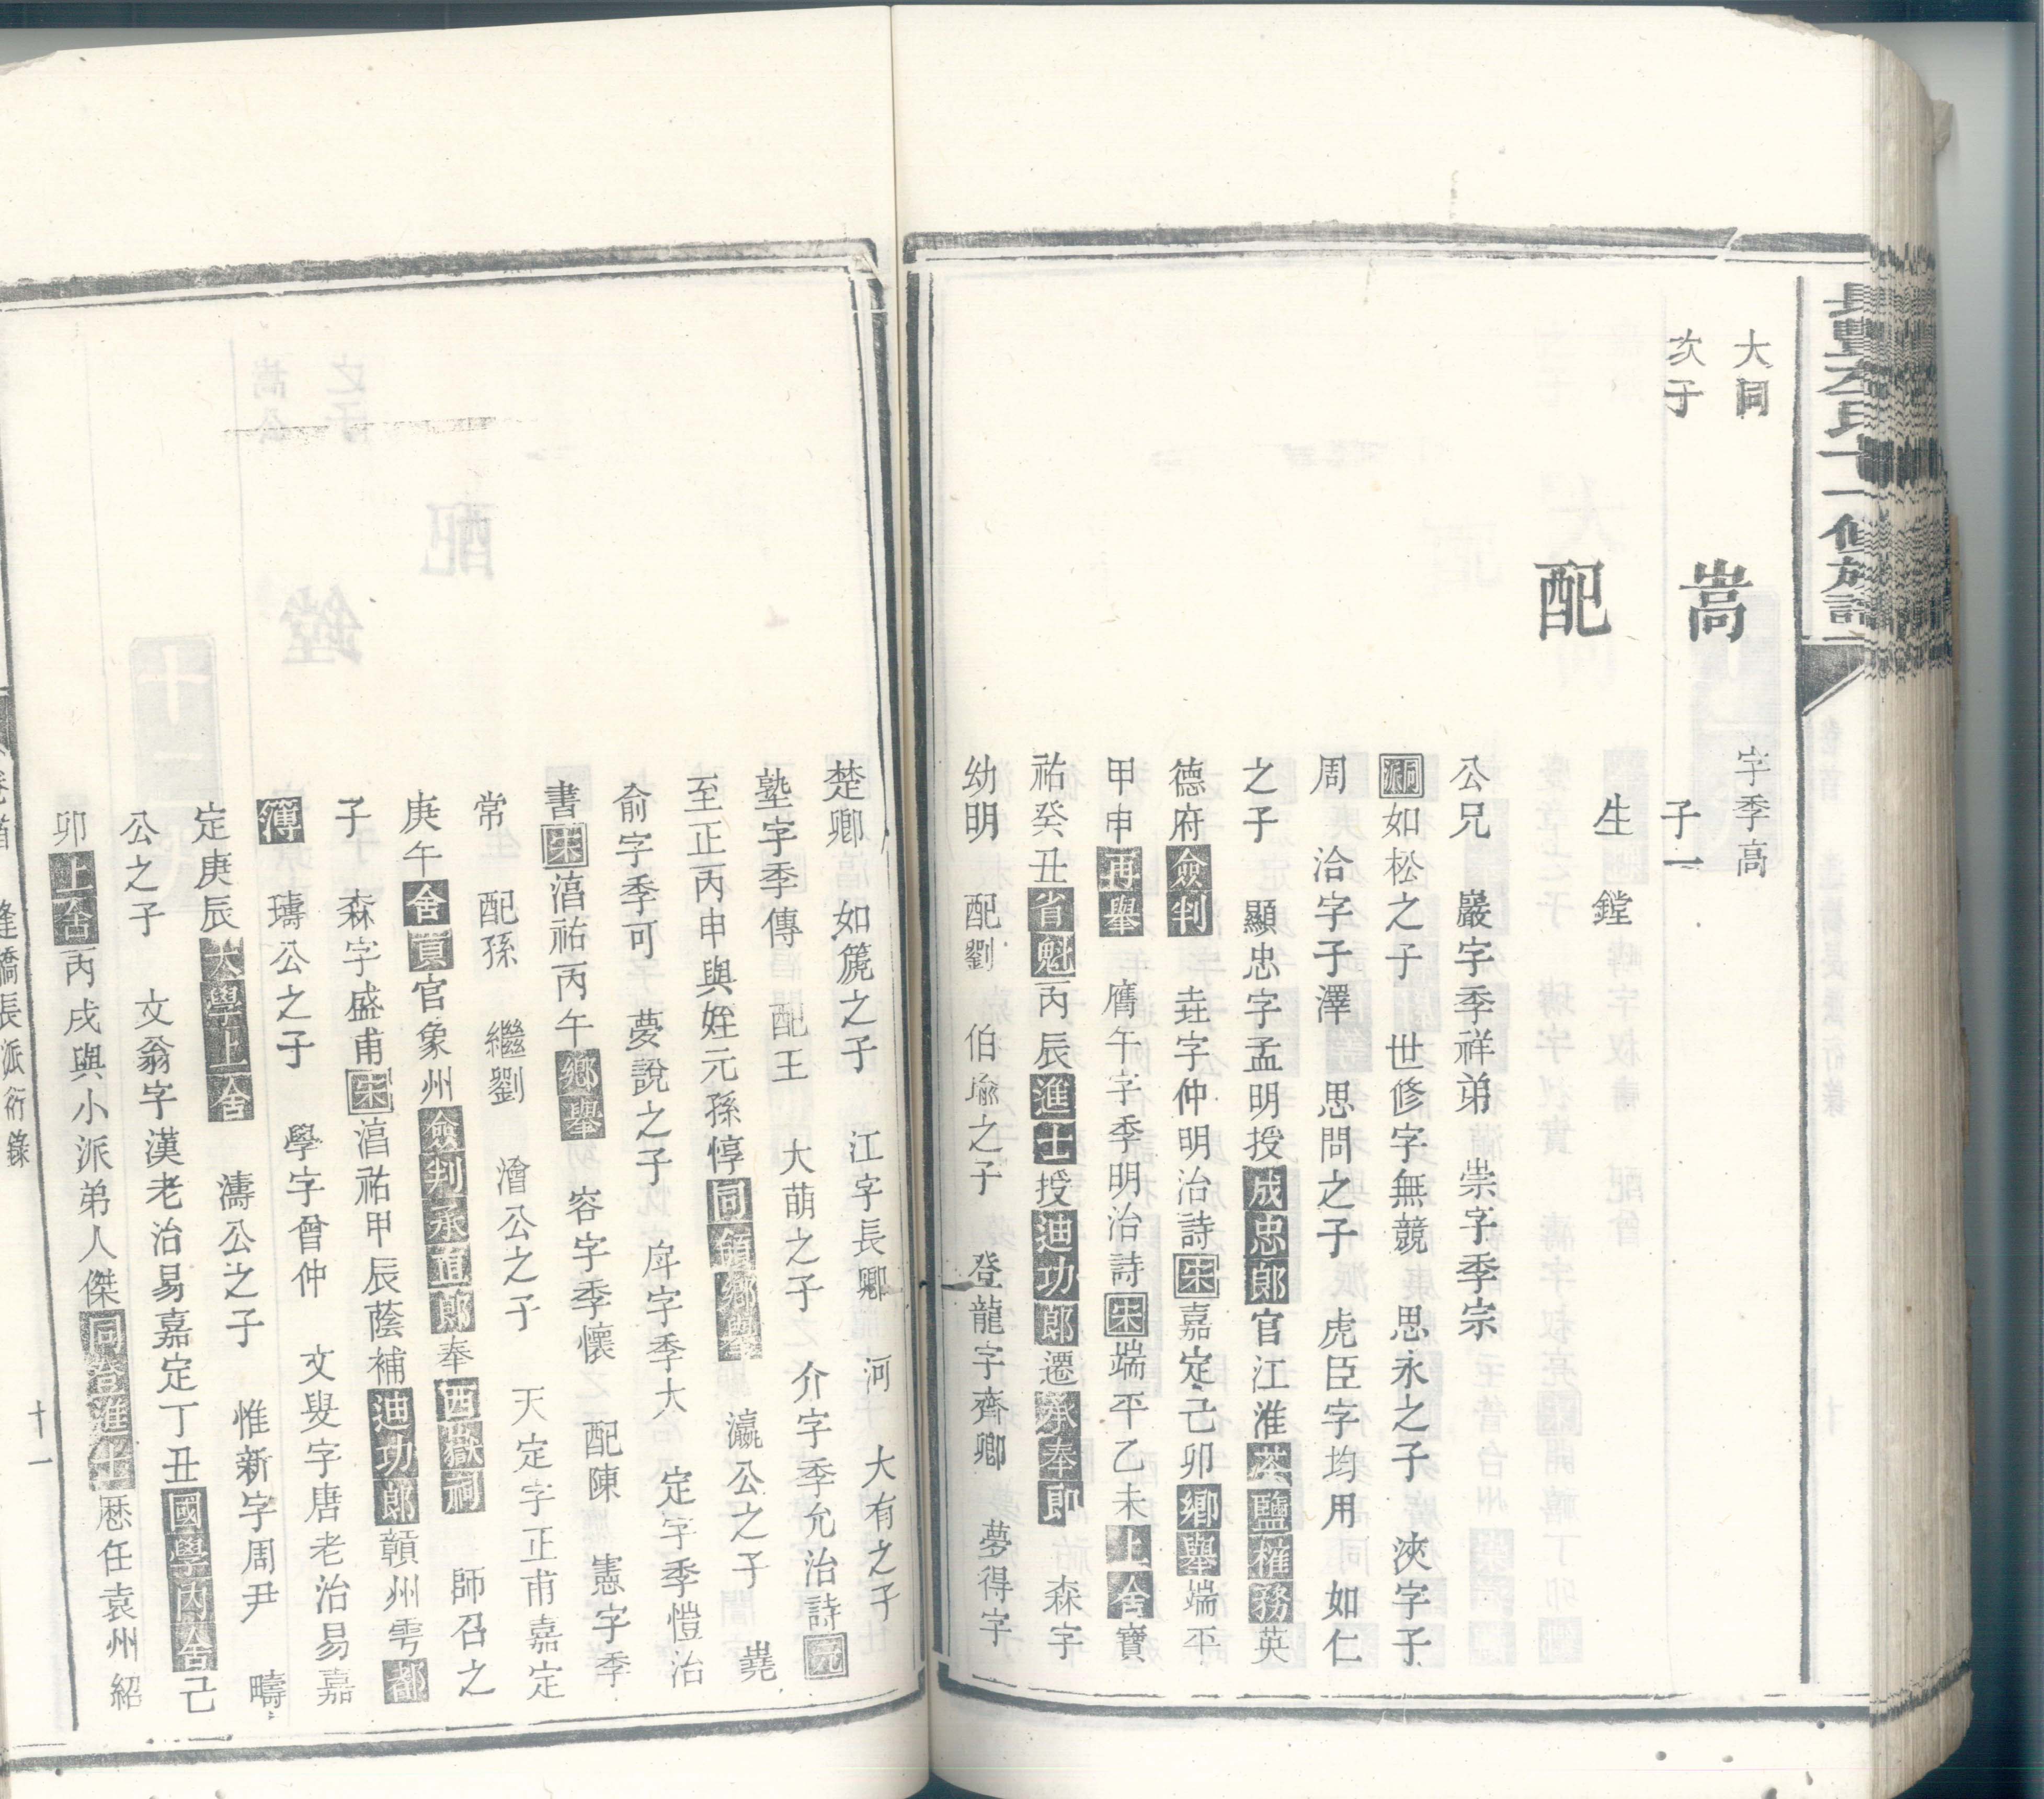 長豐左氏十一修族譜
大同
次子
嵩
字季高
子一
配
生 鏜
公兄 巖字季祥弟 崇字季宗
洞如松之子 世修字無競 思永之子 浹字子
周 洽字子澤 思問之子 虎臣字均用 如仁
之子 顯忠字孟明授成忠郎官江淮茶鹽榷務英
德府僉判 垚字仲明治詩宋嘉定己卯鄉舉端平
甲申再舉 鴈午字季明治詩宋端平乙未上舍寶
祐癸丑省魁丙辰進士授迪功郎遷承奉郎 森字
幼明 配劉 伯瑜之子 登龍字齊卿 夢得字
楚卿 如篪之子 江字長卿 河 大有之子
塾字季傳 配王 大萌之子 介字季允治詩元
至正丙申與姪元孫惇同領鄉舉 瀛公之子 蕘
俞字季可 夢說之子 席字季大 定字季愷治
書宋淳祐丙午鄉舉 容字季懷 配陳 憲字季
常 配孫 繼劉 澮公之子 天定字正甫嘉定
庚午舍貢官象州僉判承直郎奉西嶽祠 師召之
子 森字盛甫宋淳祐甲辰蔭補迪功郎贛州雩都
簿 璹公之子 學字曾仲 文叟字唐老治易嘉
定庚辰大學上舍 濤公之子 惟新字周尹 疇
公之子 文翁字漢老治易嘉定丁丑國學內舍己
卯上舍丙戌與小派弟人傑同登進士歷任袁州紹
卷首 逢橋長派衍錄
十一